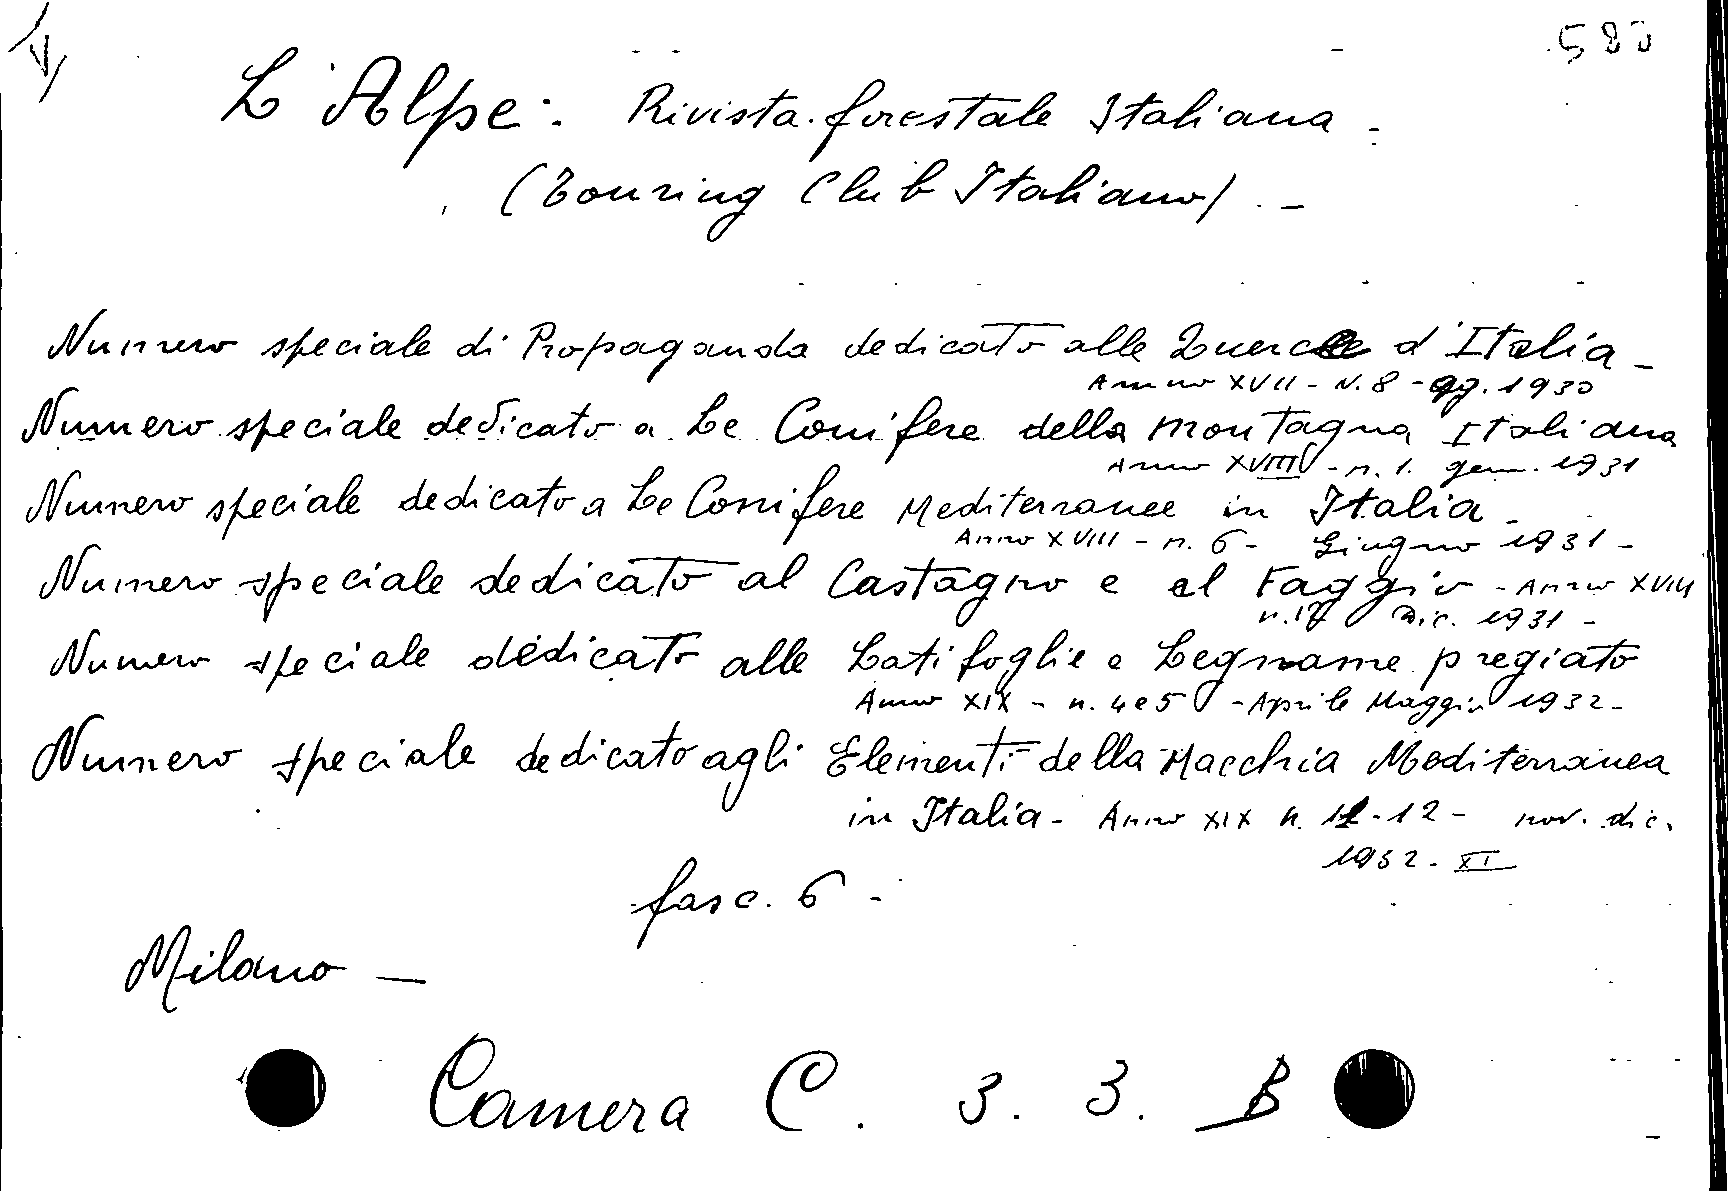 580
L'Alpe: Rivista forestale Italiana -
(Touring Club Italiano) . -
Numero speciale di Propaganda dedicato alle Querce d'Italia -
Anno XVII - N. 8 - ag. 1930
Numero speciale dedicato a Le Conifere della Montagna Italiana
Anno XVIII - n. 1. genn. 1931
Numero speciale dedicato a Le Conifere Mediterranee in Italia -
Anno XVIII - n. 6 - Giugno 1931 -
Numero speciale dedicato al Castagno e al Faggio - Anno XVIII
n. 12 Dic. 1931 -
Numero speciale dedicato alle Latifoglie a Legname pregiato
Anno XIX - n. 4 e 5 - Aprile Maggio 1932 -
Numero speciale dedicato agli Elementi della Macchia Mediterranea
in Italia - Anno XIX n. 11-12 - nov. dic.
1932 - XI
fasc. 6 -
Milano -
Camera C. 3. 3. B